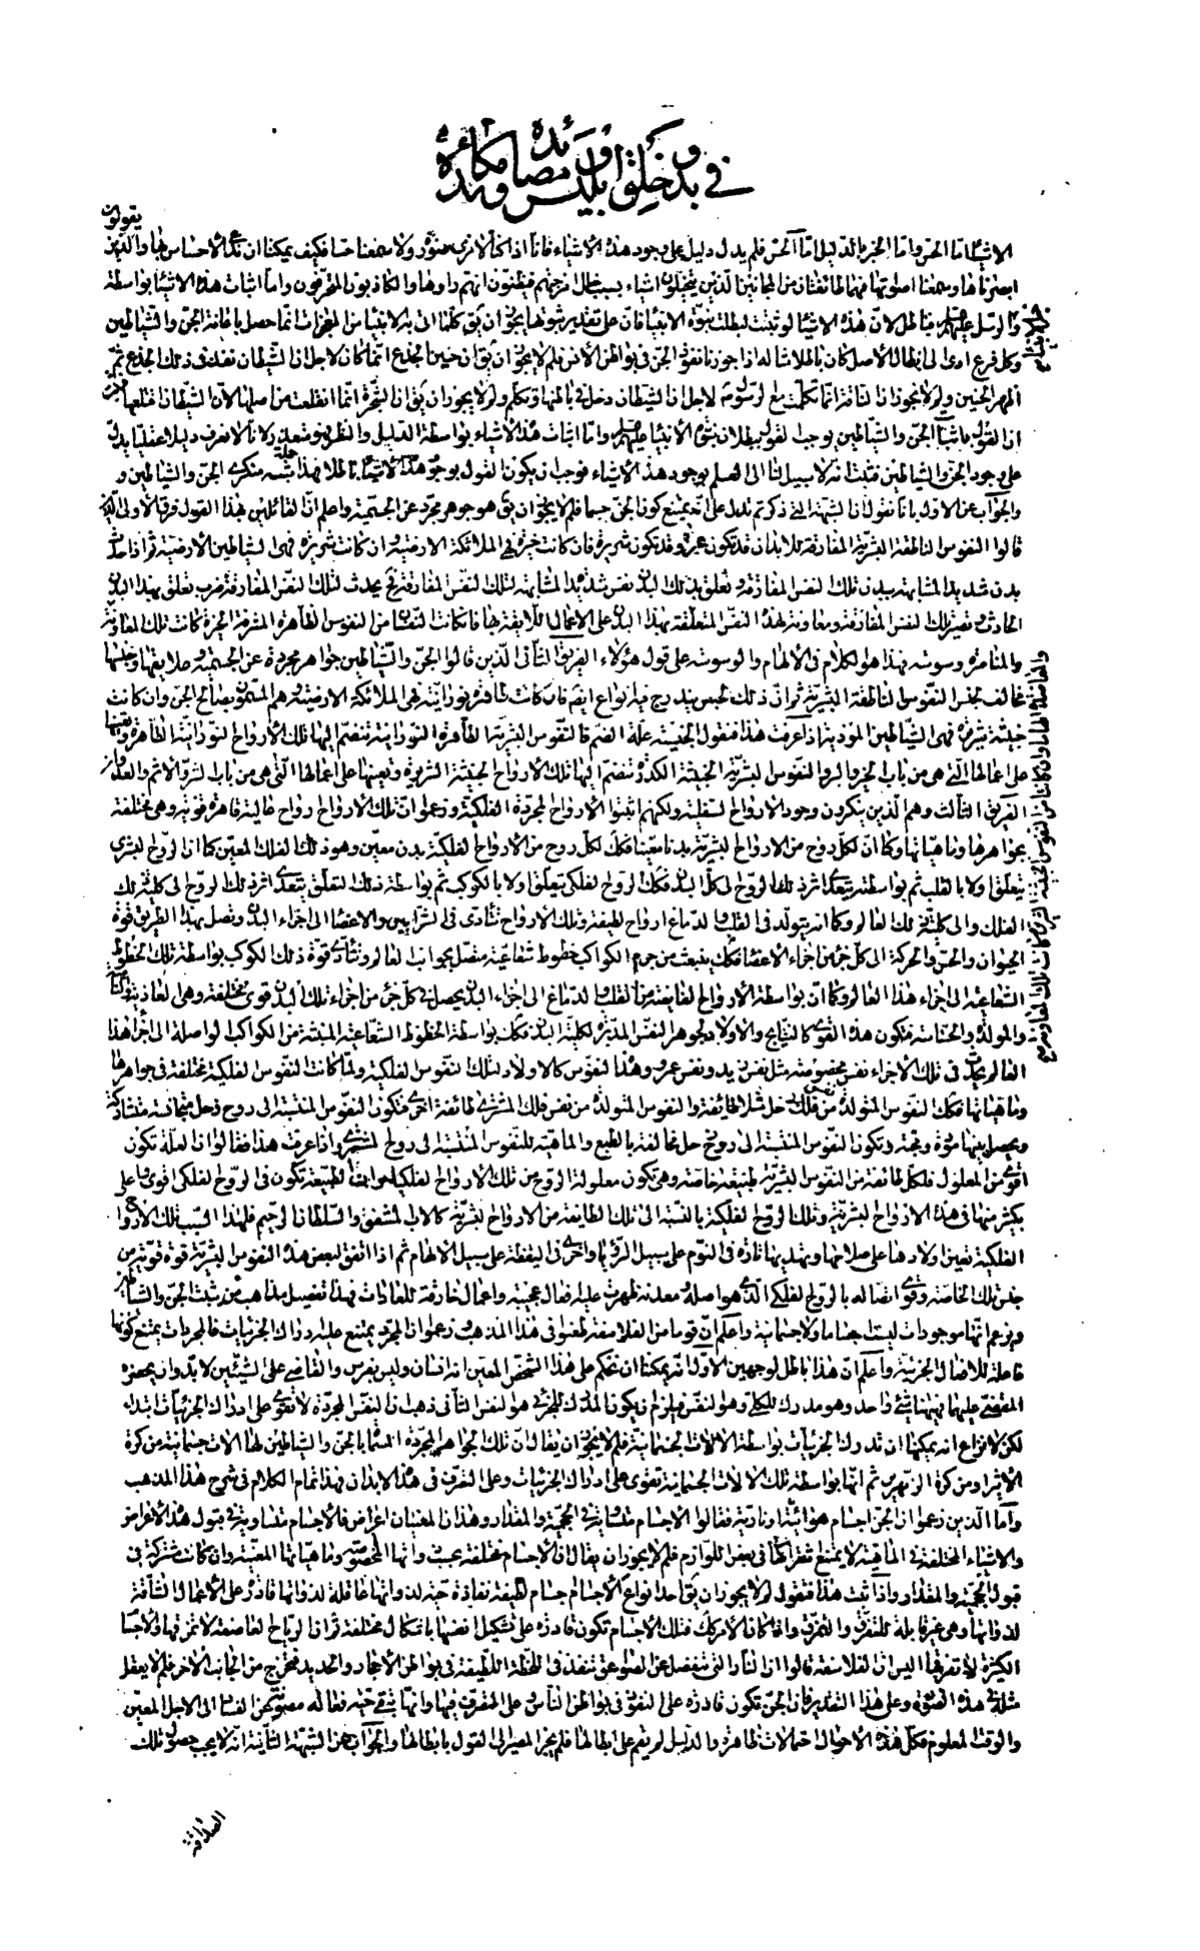 في بدو خلق ابليس وقصصه ومصائده ومكائده
يقولون
الاشياء اما الحس واما الخبر واما الدليل اما الحس فلم يدل دليل على وجود هذه الاشياء فانا اذا كنا لا نرى صورة ولا سمعنا صوتا فكيف يمكننا ان ندعي الاحساس بها والذين
ابصرناها وسمعنا اصواتها فهما طائفتان من المجانين الذين يتخيلون اشياء بسبب خلل امزجتهم فيظنون انهم راوها والكاذبون المخرفون واما اثبات هذه الاشياء بواسطة
والرسل عليهم السلام فباطل لان هذه الاشياء لو ثبتت لبطلت نبوة الانبياء فان على تقدير ثبوتها يجوز ان يق كلما اتى به الانبياء من المعجزات انما حصل باعانة الجن والشياطين
وكل فرع ادى الى ابطال الاصل كان باطلا مثاله اذا جوزنا نفوذ الجن في بواطن الانسان فلم لا يجوز ان يق ان حنين الجذع انما كان لاجل ان الشيطان نفذ في ذلك الجذع ثم
اظهر الحنين ولم لا يجوز ان الناقة انما تكلمت مع الرسول لاجل ان الشيطان دخل في باطنها وتكلم ولم لا يجوز ان يق ان الشجرة انما انقلعت من اصلها لان الشيطان اقتلعها فثبت
ان القول باثبات الجن والشياطين يوجب القول ببطلان نبوة الانبياء عليهم السلام واما اثبات هذه الاشياء بواسطة الدليل والنظر فهو متعذر لانا لا نعرف دليلا عقليا يدل
على وجود الجن والشياطين فثبت انه لا سبيل لنا الى العلم بوجود هذه الاشياء فوجب ان يكون القول بوجود هذه الاشياء باطلا فهذا جملة شبه منكري الجن والشياطين و
والجواب عن الاول بانا نقول ان الشبهة التي ذكرتم تدل على انه يمتنع كون الجن جسما فلم لا يجوز ان يق هو جوهر مجرد عن الجسمية واعلم ان القائلين بهذا القول فرق الاولى الذين
قالوا النفوس الناطقة البشرية المفارقة للابدان قد تكون خيرة وقد تكون شريرة فان كانت خيرة فهي الملائكة الارضية وان كانت شريرة فهي الشياطين الارضية ثم اذا حدث
بدن شديد المشابهة ببدن تلك النفس المفارقة وتعلق بذلك البدن نفس شديدة المشابهة لتلك النفس المفارقة فح يحدث لتلك النفس المفارقة ضرب تعلق بهذا البدن
الحادث وتصير تلك النفس المفارقة معاونة لهذه النفس المتعلقة بهذا البدن على الاعمال اللايقة بها فان كانت النفسان من النفوس الطاهرة المشرقة الخيرة كانت تلك المعاونة
والمناصرة وسوسة فهذا هو الكلام في الالهام والوسوسة على قول هؤلاء الفريق الثاني الذين قالوا الجن والشياطين جواهر مجردة عن الجسمية وعلايقها وجنسها
مخالف لجنس النفوس الناطقة البشرية ثم ان ذلك الجنس يندرج فيه انواع ايضا فان كانت طاهرة نورانية فهي الملائكة الارضية وهم المسمون بصالحي الجن وان كانت
خبيثة شريرة فهي الشياطين الموذية اذا عرفت هذا فنقول الجنسية علة الضم فالنفوس البشرية الطاهرة النورانية تنضم اليها تلك الارواح النورانية الطاهرة وتعينها
على اعمالها التي هي من باب الخير والبر والنفوس البشرية الخبيثة الكدرة تنضم اليها تلك الارواح الخبيثة الشريرة وتعينها على اعمالها التي هي من باب الشر والاثم والعدوان
الفريق الثالث وهم الذين ينكرون وجود الارواح السفلية ولكنهم اثبتوا الارواح المجردة الفلكية وزعموا ان تلك الارواح ارواح عالية قاهرة قوية وهي مختلفة
بجواهرها وماهياتها وكما ان لكل روح من الارواح البشرية بدنا معينا فكك لكل روح من الارواح الفلكية بدن معين وهو ذلك الفلك المعين كما ان الروح البشري
يتعلق اولا بالقلب ثم بواسطته يتعدى اثر ذلك الروح الى كل البدن فكك الروح الفلكي يتعلق اولا بالكوكب ثم بواسطة ذلك التعلق يتعدى اثر ذلك الروح الى كلية ذلك
الفلك والى كلية ذلك العالم وكما انه يتولد في القلب والدماغ ارواح لطيفة وتلك الارواح تتادى في الشرايين والاعصاب الى اجزاء البدن وتصل بهذا الطريق قوة
الحيوة والحس والحركة الى كل جزء من اجزاء الاعضاء فكك ينبعث من جرم الكواكب خطوط شعاعية متصل بجوانب العالم وتتادى قوة ذلك الكوكب بواسطة تلك الخطوط
الشعاعية الى اجزاء هذا العالم وكما ان بواسطة الارواح الفايضة من القلب والدماغ الى اجزاء البدن يحصل في كل جزء من اجزاء ذلك البدن قوى مختلفة وهي الغاذية والنامية
والمولدة والحساسة فتكون هذه القوى كالنتايج والاولاد لجوهر النفس المدبرة لكلية البدن فكك بواسطة الخطوط الشعاعية المنبثة من الكواكب الواصلة الى اجزاء هذا
العالم يحدث في تلك الاجزاء نفس مخصوصة مثل نفس زيد ونفس عمرو وهذه النفوس كالاولاد لتلك النفوس الفلكية ولما كانت النفوس الفلكية مختلفة في جواهرها
وماهياتها فكك النفوس المتولدة من نفس فلك زحل مثلا طائفة والنفوس المتولدة من نفس فلك المشتري طائفة اخرى فتكون النفوس المنتسبة الى روح زحل متجانسة متشاركة
ويحصل بينها مودة ومحبة وتكون النفوس المنتسبة الى روح زحل مخالفة بالطبع والماهية للنفوس المنتسبة الى روح المشتري واذا عرفت هذا فقالوا ان العلة تكون
اقوى من المعلول فلكل طائفة من النفوس البشرية طبيعة خاصة وهي تكون معلولة لروح من تلك الارواح الفلكية وتلك الطبيعة تكون في الروح الفلكي اقوى واعلى
بكثير منها في هذه الارواح البشرية وتلك الروح الفلكية بالنسبة الى تلك الطايفة من الارواح البشرية كالاب المشفق والسلطان الرحيم فلهذا السبب تلك الارواح
الفلكية تعين اولادها على صلاحها وتهديها تارة في النوم على سبيل الرؤيا واخرى في اليقظة على سبيل الالهام ثم اذا اتفق لبعض هذه النفوس البشرية قوة قوية من
جنس تلك الخاصة وقوى اتصاله بالروح الفلكي الذي هو اصله ومعدنه ظهرت عليه افعال عجيبة واعمال خارقة للعادات فهذا تفصيل مذاهب من يثبت الجن والشياطين
ويزعم انها موجودات ليست اجساما ولا جسمانية واعلم ان قوما من الفلاسفة طعنوا في هذا المذهب وزعموا ان المجرد يمتنع عليه ادراك الجزئيات فالمجردات يمتنع كونها
فاعلة للافعال الجزئية واعلم ان هذا باطل لوجهين الاول انه يمكننا ان نحكم على هذا الشخص المعين انه انسان وليس بفرس والقاضي على الشيئين لا بد وان يحضره
المقضي عليهما فههنا شيء واحد وهو مدرك للكلي وهو النفس فيلزم ان يكون المدرك للجزئي هو النفس الثاني ذهب ان النفس المجردة لا تقوى على ادراك الجزئيات ابتداء
لكن لا نزاع انه يمكنها ان تدرك الجزئيات بواسطة الالات الجسمانية فلم لا يجوز ان يقال ان تلك الجواهر المجردة المسماة بالجن والشياطين لها الات جسمانية من كرة
الاثير او من كرة الزمهرير ثم انها بواسطة تلك الالات الجسمانية تقوى على ادراك الجزئيات وعلى التصرف في هذه الابدان فهذا تمام الكلام في شرح هذا المذهب
واما الذين زعموا ان الجن اجسام هوائية او نارية فقالوا الاجسام متساوية في الحجمية والمقدار وهذان المعنيان اعراض فالاجسام متساوية في قبول هذه الاعراض
والاشياء المختلفة في الماهية لا يمتنع اشتراكها في بعض اللوازم فلم لا يجوز ان يقال ان الاجسام مختلفة بحسب ذواتها المخصوصة وماهياتها المعينة وان كانت مشتركة في
قبول الحجمية والمقدار واذا ثبت هذا فنقول لم لا يجوز ان يق احد انواع الاجسام اجسام لطيفة نفاذة حية لذواتها عاقلة لذواتها قادرة على الاعمال الشاقة
لذواتها وهي غير قابلة للتفرق والتمزق واذا كان الامر كك فتلك الاجسام تكون قادرة على تشكيل انفسها باشكال مختلفة ثم ان الرياح العاصفة لا تمزقها والاجسام
الكثيرة لا تفرقها اليس ان الفلاسفة قالوا ان النار التي تنفصل عن الصواعق تنفذ في اللحظة اللطيفة في بواطن الاحجار والحديد فتخرج من الجانب الاخر فلم لا يعقل
مثله في هذه الصورة وعلى هذا التقدير فان الجن تكون قادرة على النفوذ في بواطن الناس وعلى التصرف فيها وانها تبقى حية فعالة مصونة عن الفساد الى الاجل المعين
والوقت المعلوم فكل هذه الاحوال احتمالات ظاهرة والدليل لم يقم على ابطالها فلم يجز المصير الى القول بابطالها والجواب عن الشبهة الثانية انه لا يجب حصول تلك
الصداقة